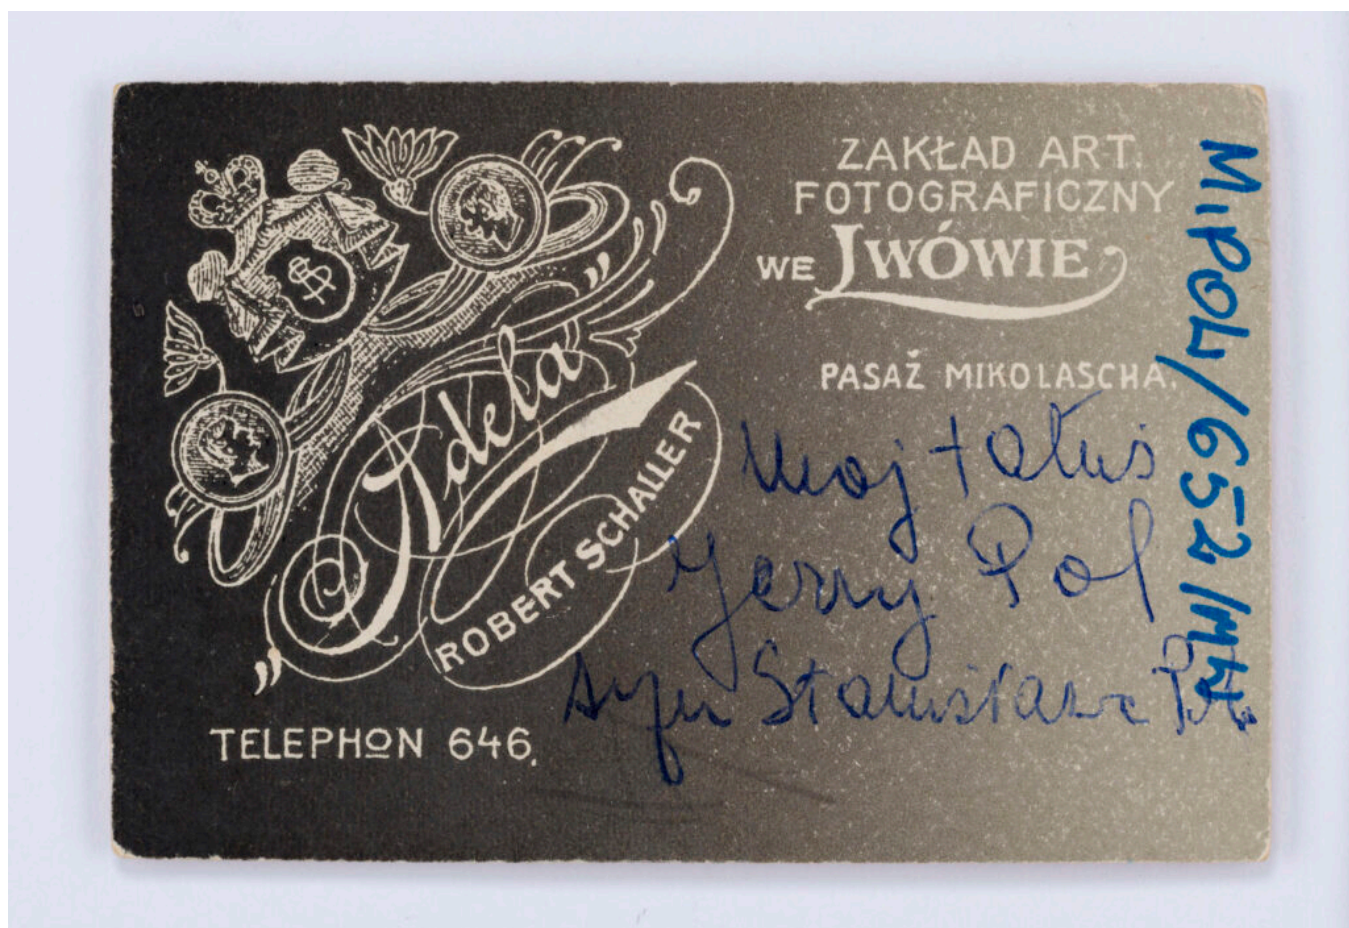 „Adela”
ROBERT SCHALLER
TELEPHON 646.
ZAKŁAD ART.
FOTOGRAFICZNY
WE LWÓWIE
PASAŻ MIKOLASCHA.
Moj tatuś
Jerzy Pol
syn Stanisława
MiPOL/652/MW